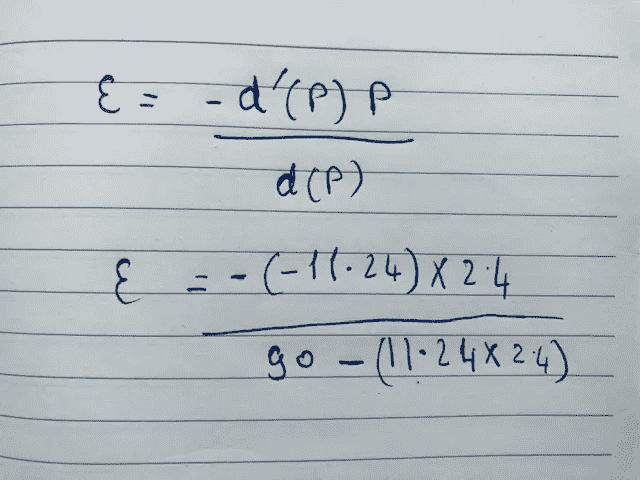 ε = - d'(P) P
d(P)
ε = - (-11.24) x 2.4
90 - (11.24 x 2.4)